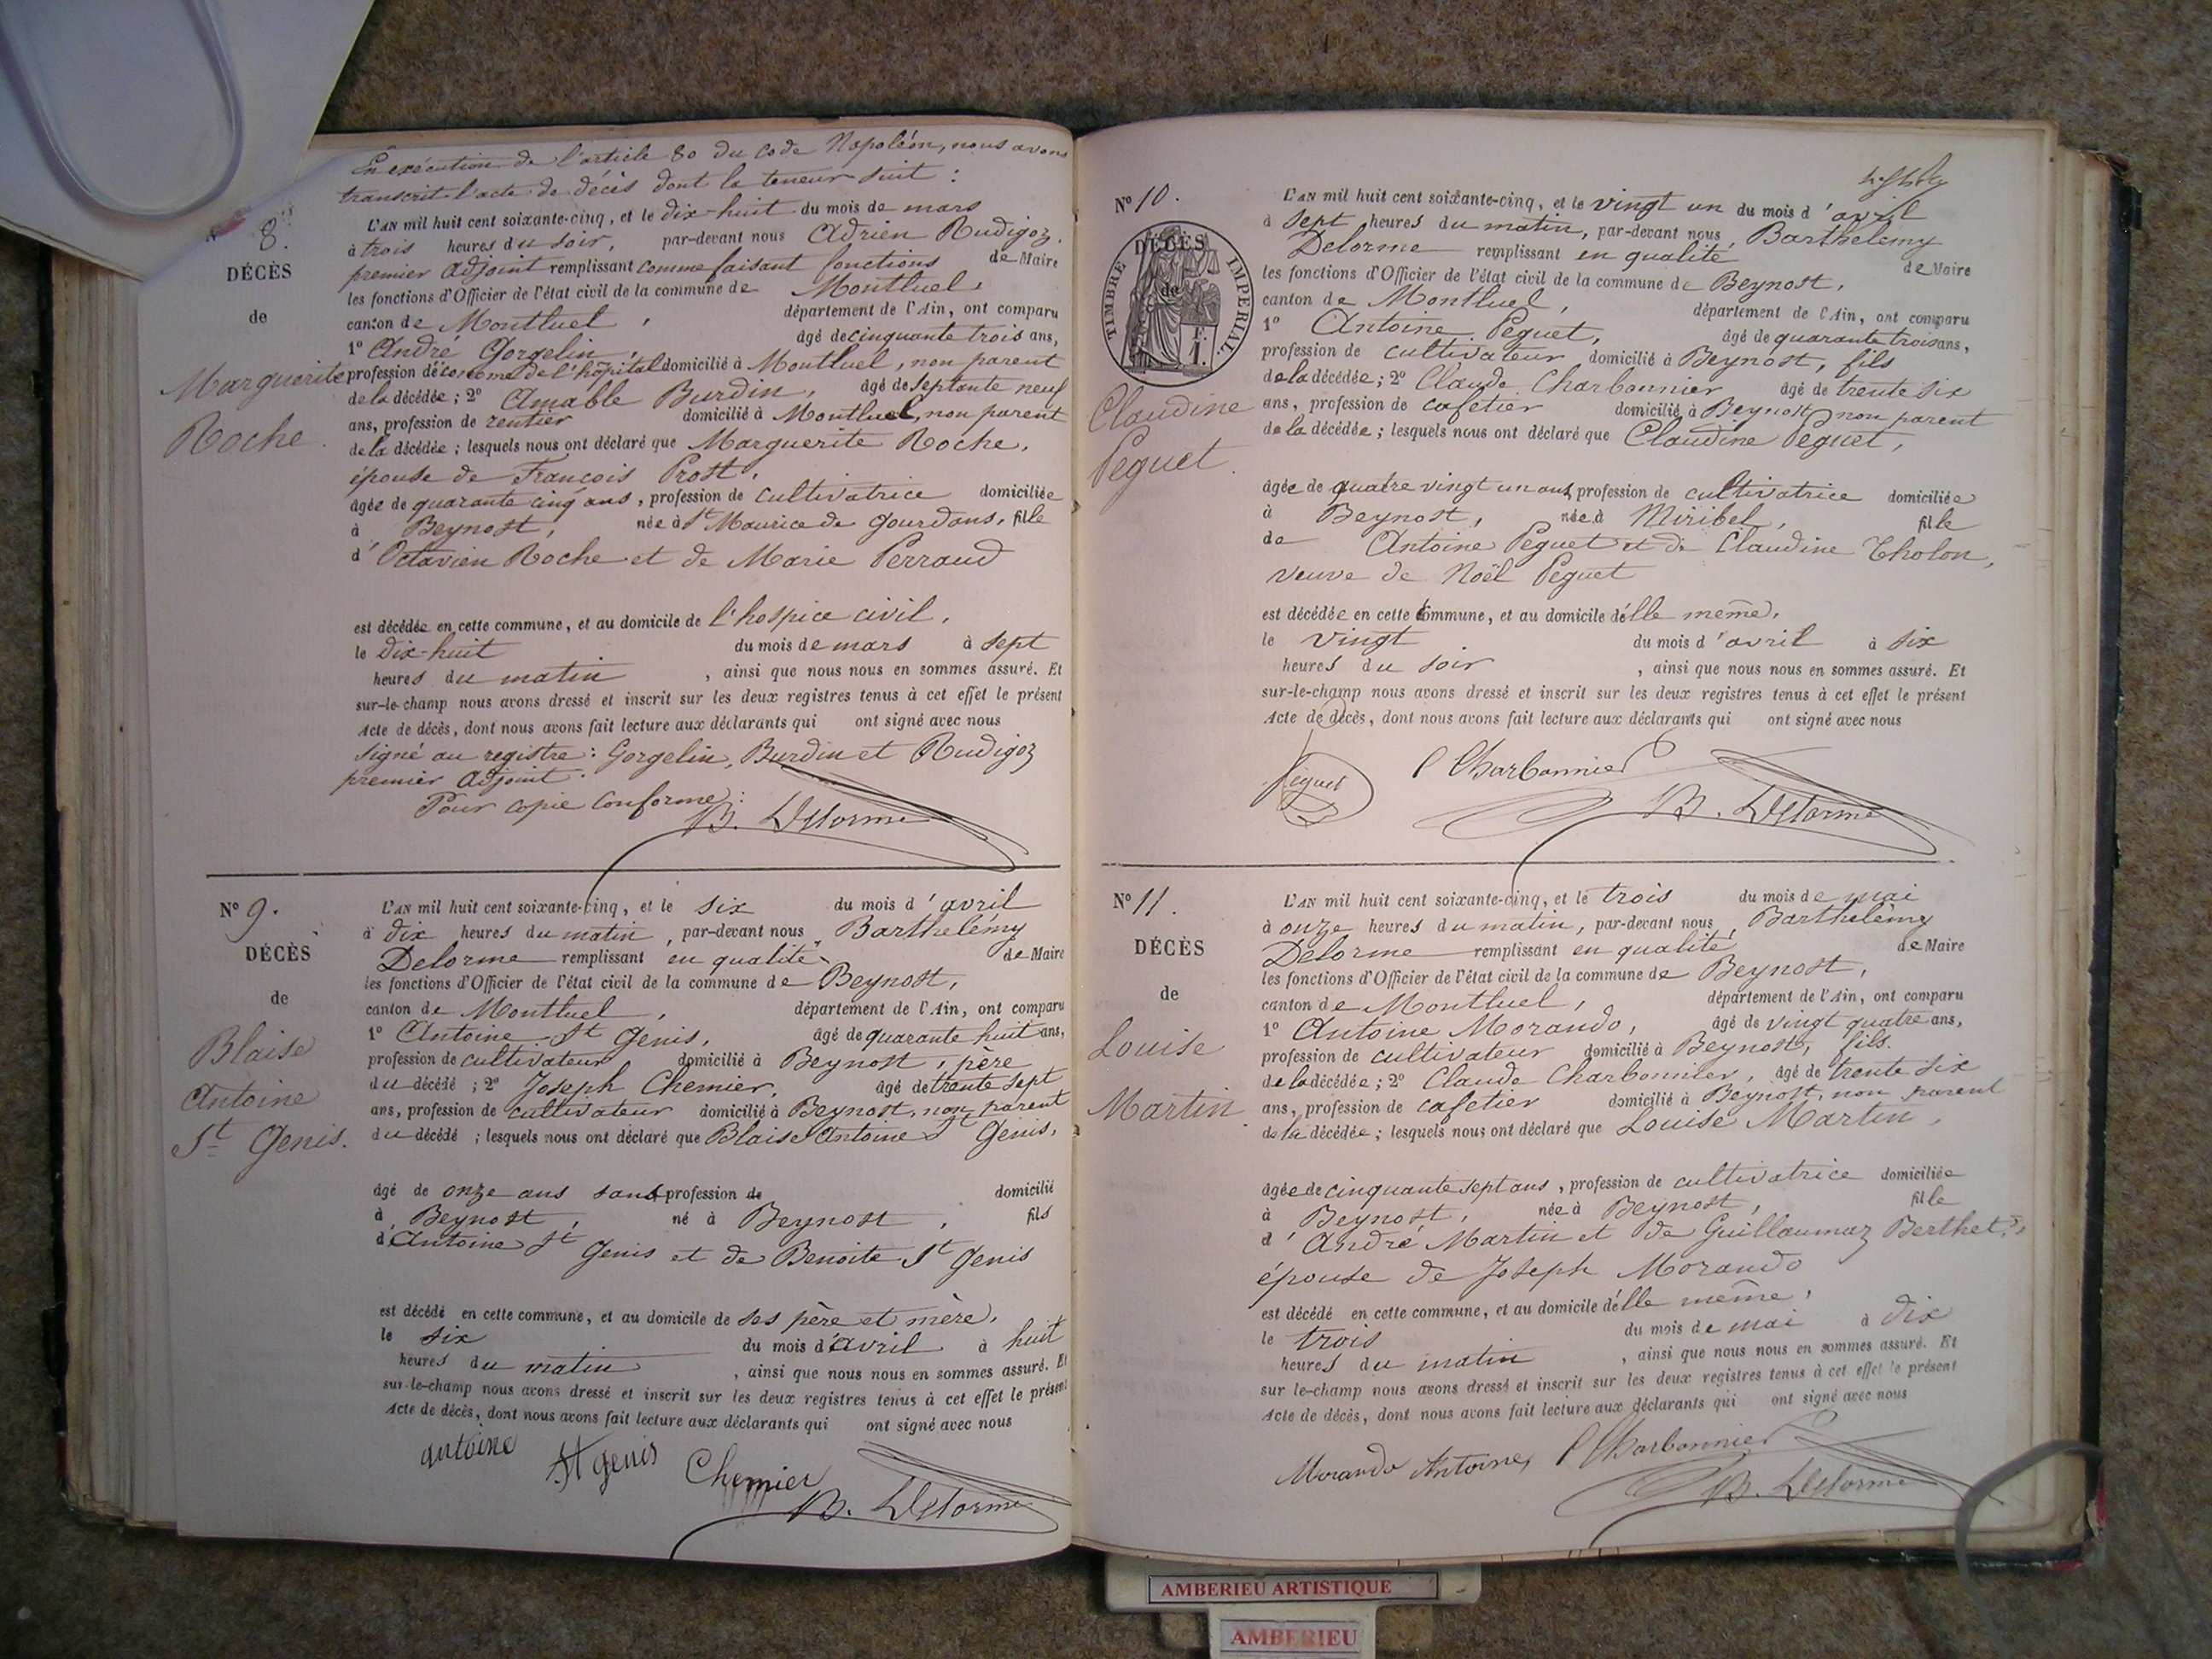 En exécution de l'article 80 du Code Napoléon, nous avons
transcrit l'acte de décès dont la teneur suit :
8.
DÉCÈS
de
Marguerite
Roche.
L'AN mil huit cent soixante-cinq, et le dix-huit du mois de mars
à trois heures du soir, par-devant nous Adrien Rudigoz,
premier adjoint remplissant comme faisant fonctions de Maire
les fonctions d'Officier de l'état civil de la commune de Montluel,
canton de Montluel, département de l'Ain, ont comparu
1° André Gorgelin, âgé de cinquante trois ans,
profession d'économe de l'hôpital domicilié à Montluel, non parent
de la décédée ; 2° Amable Burdin, âgé de septante neuf
ans, profession de rentier domicilié à Montluel, non parent
de la décédée ; lesquels nous ont déclaré que Marguerite Roche,
épouse de François Prost,
âgée de quarante cinq ans, profession de cultivatrice domiciliée
à Beynost, née à St Maurice de Gourdans, fille
d'Octavien Roche et de Marie Perraud
est décédée en cette commune, et au domicile de l'hospice civil,
le dix-huit du mois de mars à sept
heures du matin, ainsi que nous nous en sommes assuré. Et
sur-le-champ nous avons dressé et inscrit sur les deux registres tenus à cet effet le présent
Acte de décès, dont nous avons fait lecture aux déclarants qui ont signé avec nous
Signé au registre : Gorgelin, Burdin et Rudigoz
premier adjoint.
Pour copie conforme :
B. Delorme
N° 9.
DÉCÈS
de
Blaise
Antoine
St Genis.
L'AN mil huit cent soixante-cinq, et le six du mois d'avril
à dix heures du matin, par-devant nous, Barthelémy
Delorme remplissant en qualité de Maire
les fonctions d'Officier de l'état civil de la commune de Beynost,
canton de Montluel, département de l'Ain, ont comparu
1° Antoine St Genis, âgé de quarante huit ans,
profession de cultivateur domicilié à Beynost, père
du décédé ; 2° Joseph Chemier, âgé de trente sept
ans, profession de cultivateur domicilié à Beynost, non parent
du décédé ; lesquels nous ont déclaré que Blaise Antoine St Genis,
âgé de onze ans sans profession de domicilié
à Beynost, né à Beynost, fils
d'Antoine St Genis et de Benoite St Genis
est décédé en cette commune, et au domicile de ses père et mère,
le six du mois d'avril à huit
heures du matin, ainsi que nous nous en sommes assuré. Et
sur-le-champ nous avons dressé et inscrit sur les deux registres tenus à cet effet le présent
Acte de décès, dont nous avons fait lecture aux déclarants qui ont signé avec nous
antoine St genis Chemier
B. Delorme
N° 10.
TIMBRE IMPÉRIAL
DÉCÈS
de
F.
1.
Claudine
Peguet.
L'AN mil huit cent soixante-cinq, et le vingt un du mois d'avril
à sept heures du matin, par-devant nous, Barthelémy
Delorme remplissant en qualité de Maire
les fonctions d'Officier de l'état civil de la commune de Beynost,
canton de Montluel, département de l'Ain, ont comparu
1° Antoine Peguet, âgé de quarante trois ans,
profession de cultivateur domicilié à Beynost, fils
de la décédée ; 2° Claude Charbonnier âgé de trente six
ans, profession de cafetier domicilié à Beynost, non parent
de la décédée ; lesquels nous ont déclaré que Claudine Peguet,
âgée de quatre vingt un ans, profession de cultivatrice domiciliée
à Beynost, née à Miribel, fille
de Antoine Peguet et de Claudine Tholon,
veuve de Noël Peguet
est décédée en cette commune, et au domicile d'elle même,
le vingt du mois d'avril à six
heures du soir, ainsi que nous nous en sommes assuré. Et
sur-le-champ nous avons dressé et inscrit sur les deux registres tenus à cet effet le présent
Acte de décès, dont nous avons fait lecture aux déclarants qui ont signé avec nous
Peguet C Charbonnier
B. Delorme
N° 11.
DÉCÈS
de
Louise
Martin.
L'AN mil huit cent soixante-cinq, et le trois du mois de mai
à onze heures du matin, par-devant nous, Barthelémy
Delorme remplissant en qualité de Maire
les fonctions d'Officier de l'état civil de la commune de Beynost,
canton de Montluel, département de l'Ain, ont comparu
1° Antoine Morando, âgé de vingt quatre ans,
profession de cultivateur domicilié à Beynost, fils
de la décédée ; 2° Claude Charbonnier, âgé de trente six
ans, profession de cafetier domicilié à Beynost, non parent
de la décédée ; lesquels nous ont déclaré que Louise Martin,
âgée de cinquante sept ans, profession de cultivatrice domiciliée
à Beynost, née à Beynost, fille
d'André Martin et de Guillaumaz Berthet,
épouse de Joseph Morando
est décédé en cette commune, et au domicile d'elle même,
le trois du mois de mai à dix
heures du matin, ainsi que nous nous en sommes assuré. Et
sur le-champ nous avons dressé et inscrit sur les deux registres tenus à cet effet le présent
Acte de décès, dont nous avons fait lecture aux déclarants qui ont signé avec nous
Morando Antoine, C Charbonnier
B. Delorme
AMBERIEU ARTISTIQUE
AMBERIEU